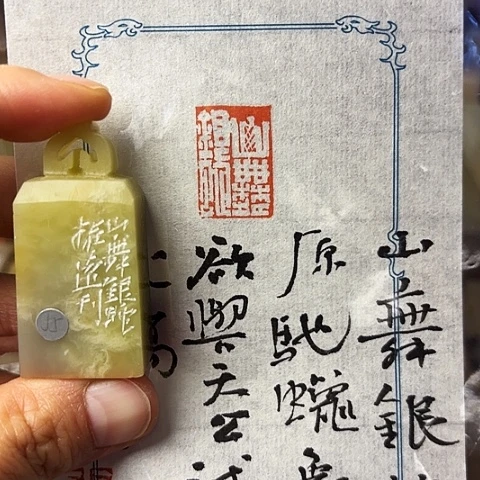 山舞銀蛇
山舞銀
原馳蠟象
欲與天公試
高
山舞銀蛇
刊